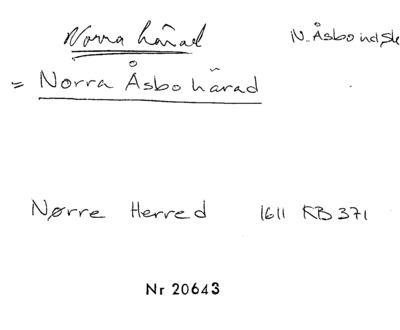 Norra härad
N. Åsbo hd Sk
= Norra Åsbo härad
Nørre Herred 1611 KB 371
Nr 20643